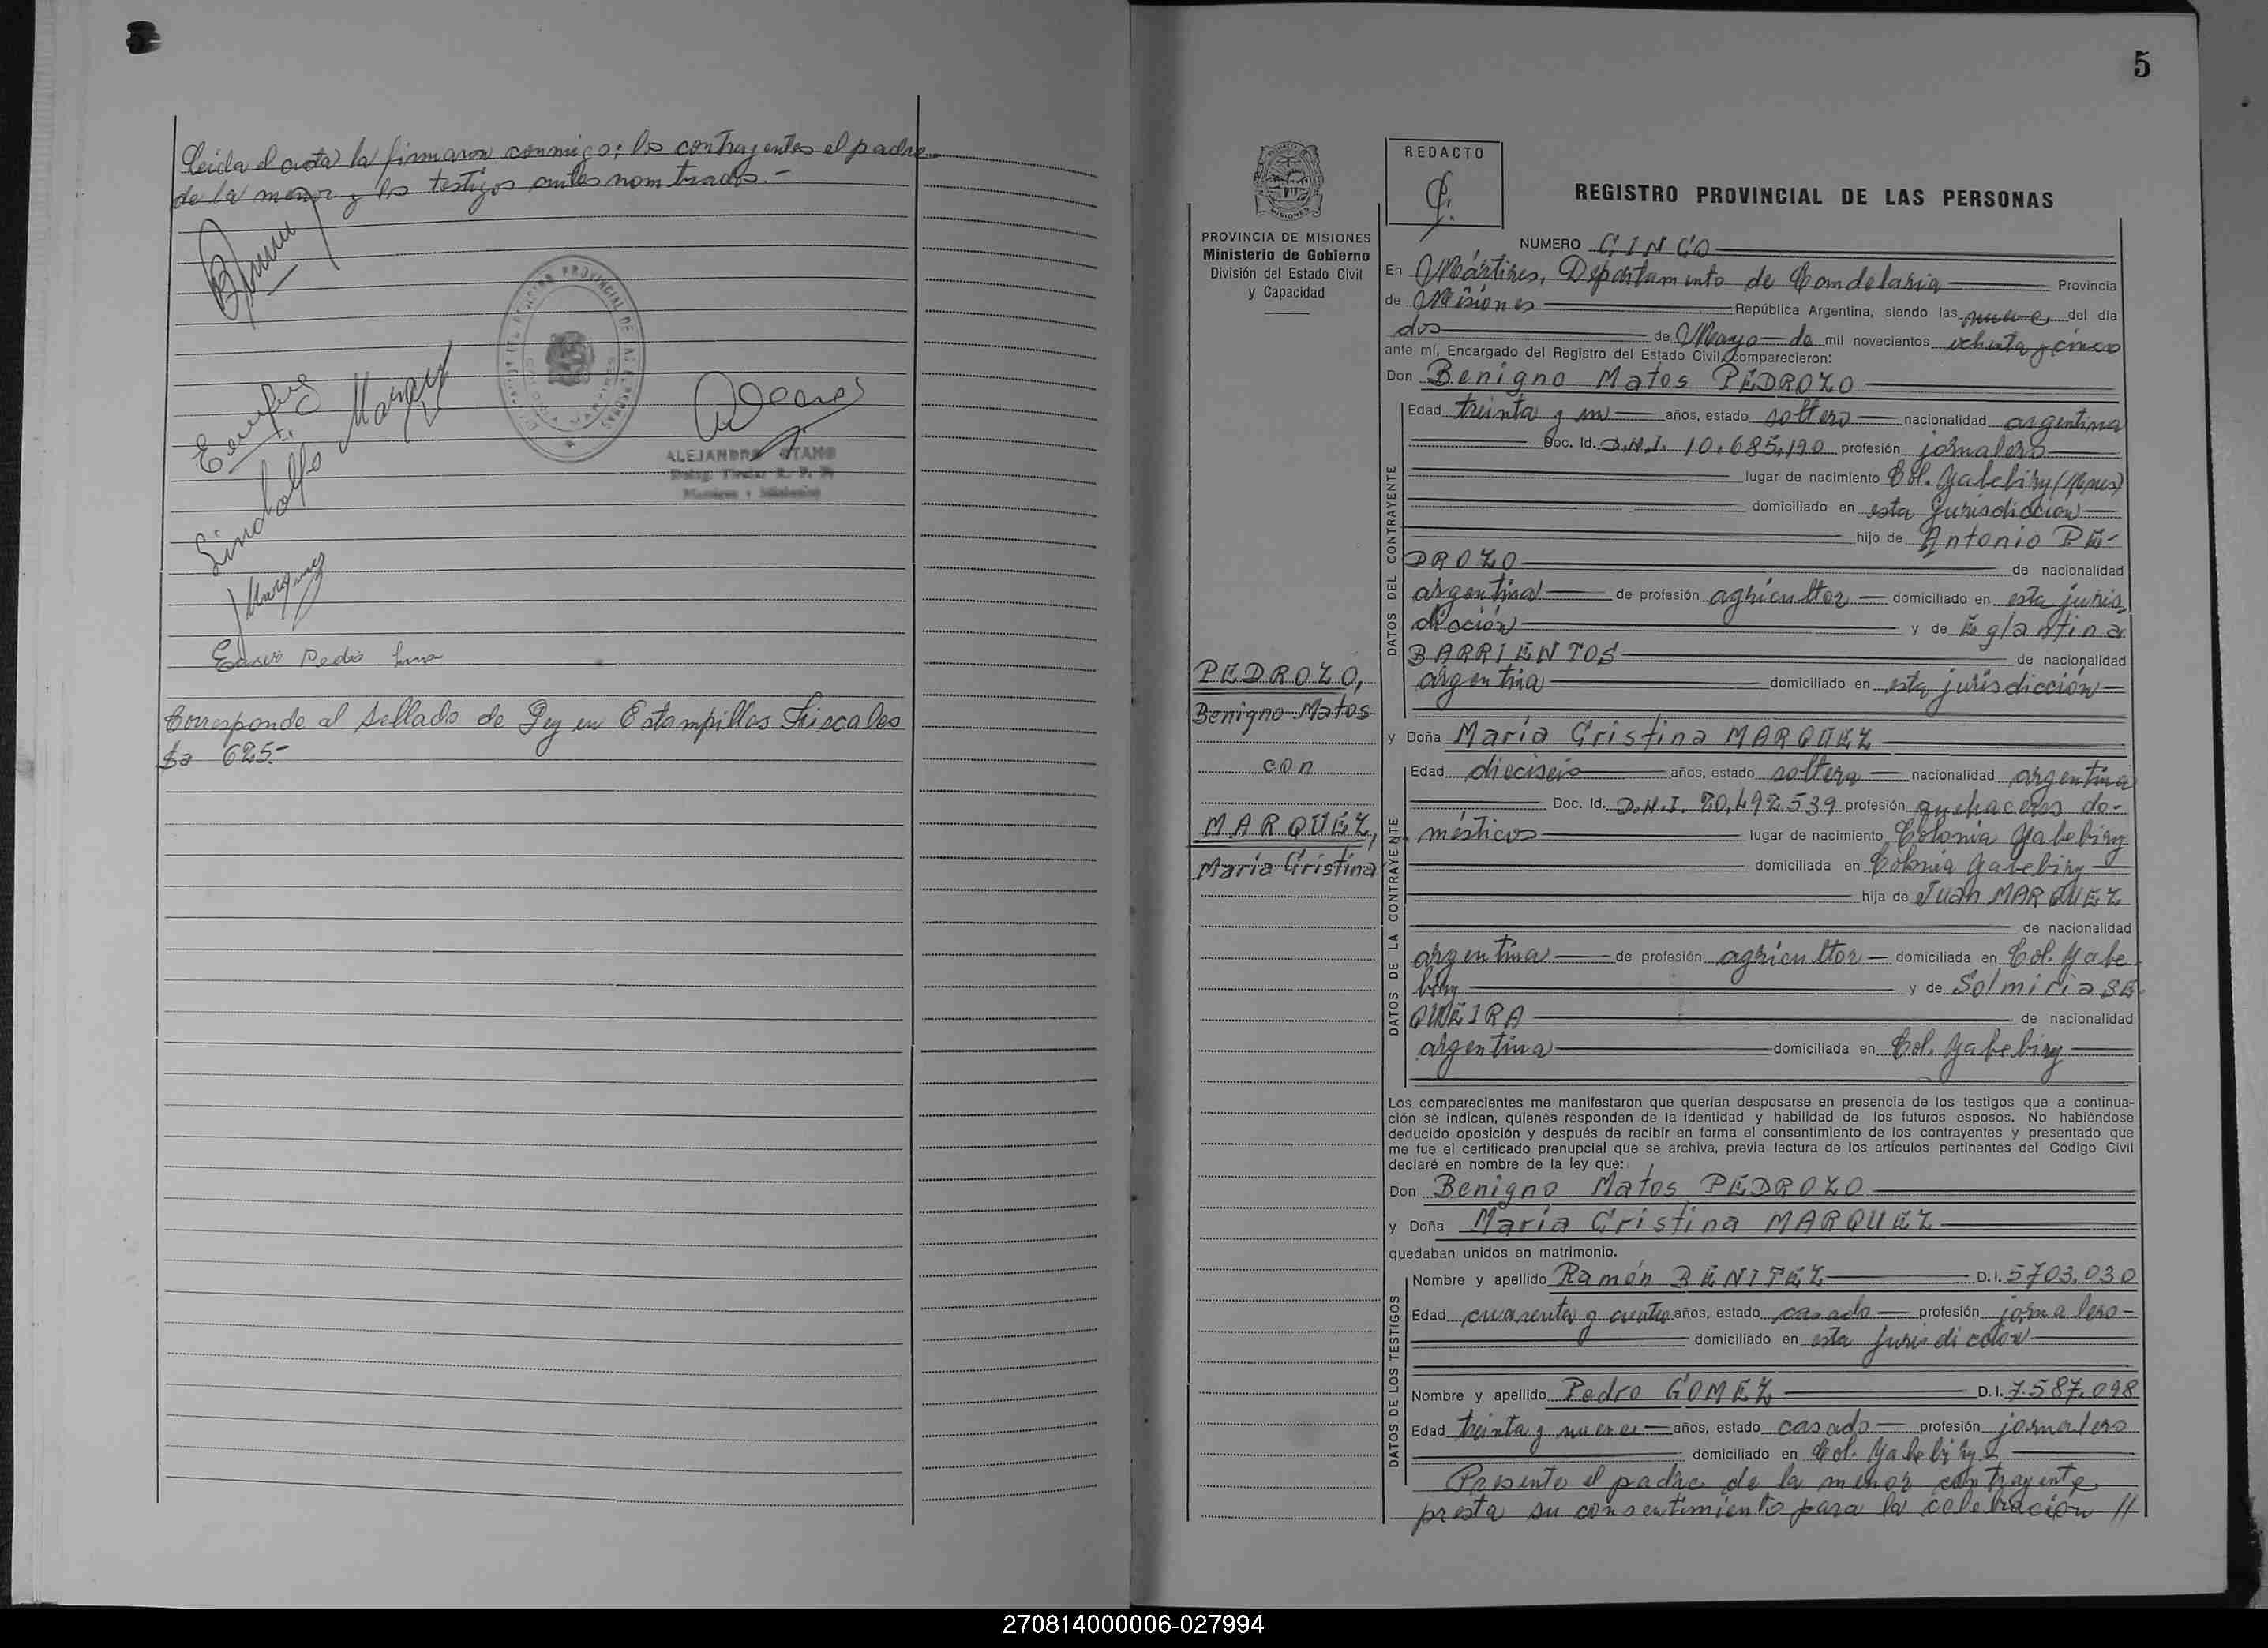 Leida el acta la firmaron conmigo; los contrayentes el padre
de la menor y los testigos antes nombrados.-
Sindolfo Marquez
Marquez
Pedro
ALEJANDRO OTAÑO
Corresponde al sellado de Ley en Estampillas Fiscales
$a 625.-
5
REDACTO
REGISTRO PROVINCIAL DE LAS PERSONAS
PROVINCIA DE MISIONES
Ministerio de Gobierno
División del Estado Civil
y Capacidad
PEDROZO,
Benigno Matos
con
MARQUEZ,
María Cristina
NUMERO CINCO
En Mártires, Departamento de Candelaria Provincia
de Misiones República Argentina, siendo las nueve del día
dos de Mayo de mil novecientos ochenta y cinco
ante mí, Encargado del Registro del Estado Civil, comparecieron:
Don Benigno Matos PEDROZO
DATOS DEL CONTRAYENTE
Edad treinta y un años, estado soltero nacionalidad argentina
Doc. Id. D.N.I. 10.685.190 profesión jornalero
lugar de nacimiento Col. Yabebiry (Mnes)
domiciliado en esta jurisdicción
hijo de Antonio PE-
DROZO de nacionalidad
argentina de profesión agricultor domiciliado en esta juris
dicción y de Eglantina
BARRIENTOS de nacionalidad
argentina domiciliado en esta jurisdicción
y Doña María Cristina MARQUEZ
DATOS DE LA CONTRAYENTE
Edad dieciseis años, estado soltera nacionalidad argentina
Doc. Id. D.N.I. 20.492.539 profesión quehaceres do-
mésticos lugar de nacimiento Colonia Yabebiry
domiciliada en Colonia Yabebiry
hija de Juan MARQUEZ
de nacionalidad
argentina de profesión agricultor domiciliada en Col. Yabe
biry y de Solmiria SE-
QUEIRA de nacionalidad
argentina domiciliada en Col. Yabebiry
Los comparecientes me manifestaron que querían desposarse en presencia de los testigos que a continua-
ción se indican, quienes responden de la identidad y habilidad de los futuros esposos. No habiéndose
deducido oposición y después de recibir en forma el consentimiento de los contrayentes y presentado que
me fue el certificado prenupcial que se archiva, previa lectura de los artículos pertinentes del Código Civil
declaré en nombre de la ley que:
Don Benigno Matos PEDROZO
y Doña María Cristina MARQUEZ
quedaban unidos en matrimonio.
DATOS DE LOS TESTIGOS
Nombre y apellido Ramón BENITEZ D.I. 5703.030
Edad cuarenta y cuatro años, estado casado profesión jornalero
domiciliado en esta jurisdicción
Nombre y apellido Pedro GOMEZ D.I. 7.587.098
Edad treinta y nueve años, estado casado profesión jornalero
domiciliado en Col. Yabebiry
Presente el padre de la menor contrayente
presta su consentimiento para la celebración //
270814000006-027994